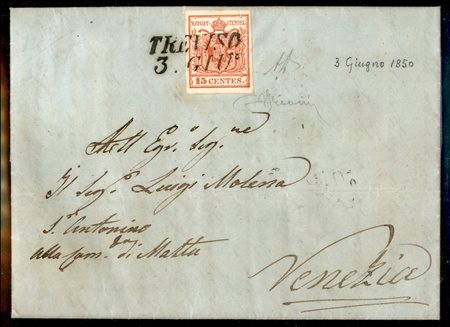 TREVISO
3. GIUº
KPOST STEMPEL
15 CENTES.
3 Giugno 1850
All' Egrº Signe
Il Sigr Luigi Molena
S. Antonino
alla fam. di Malta
Venezia